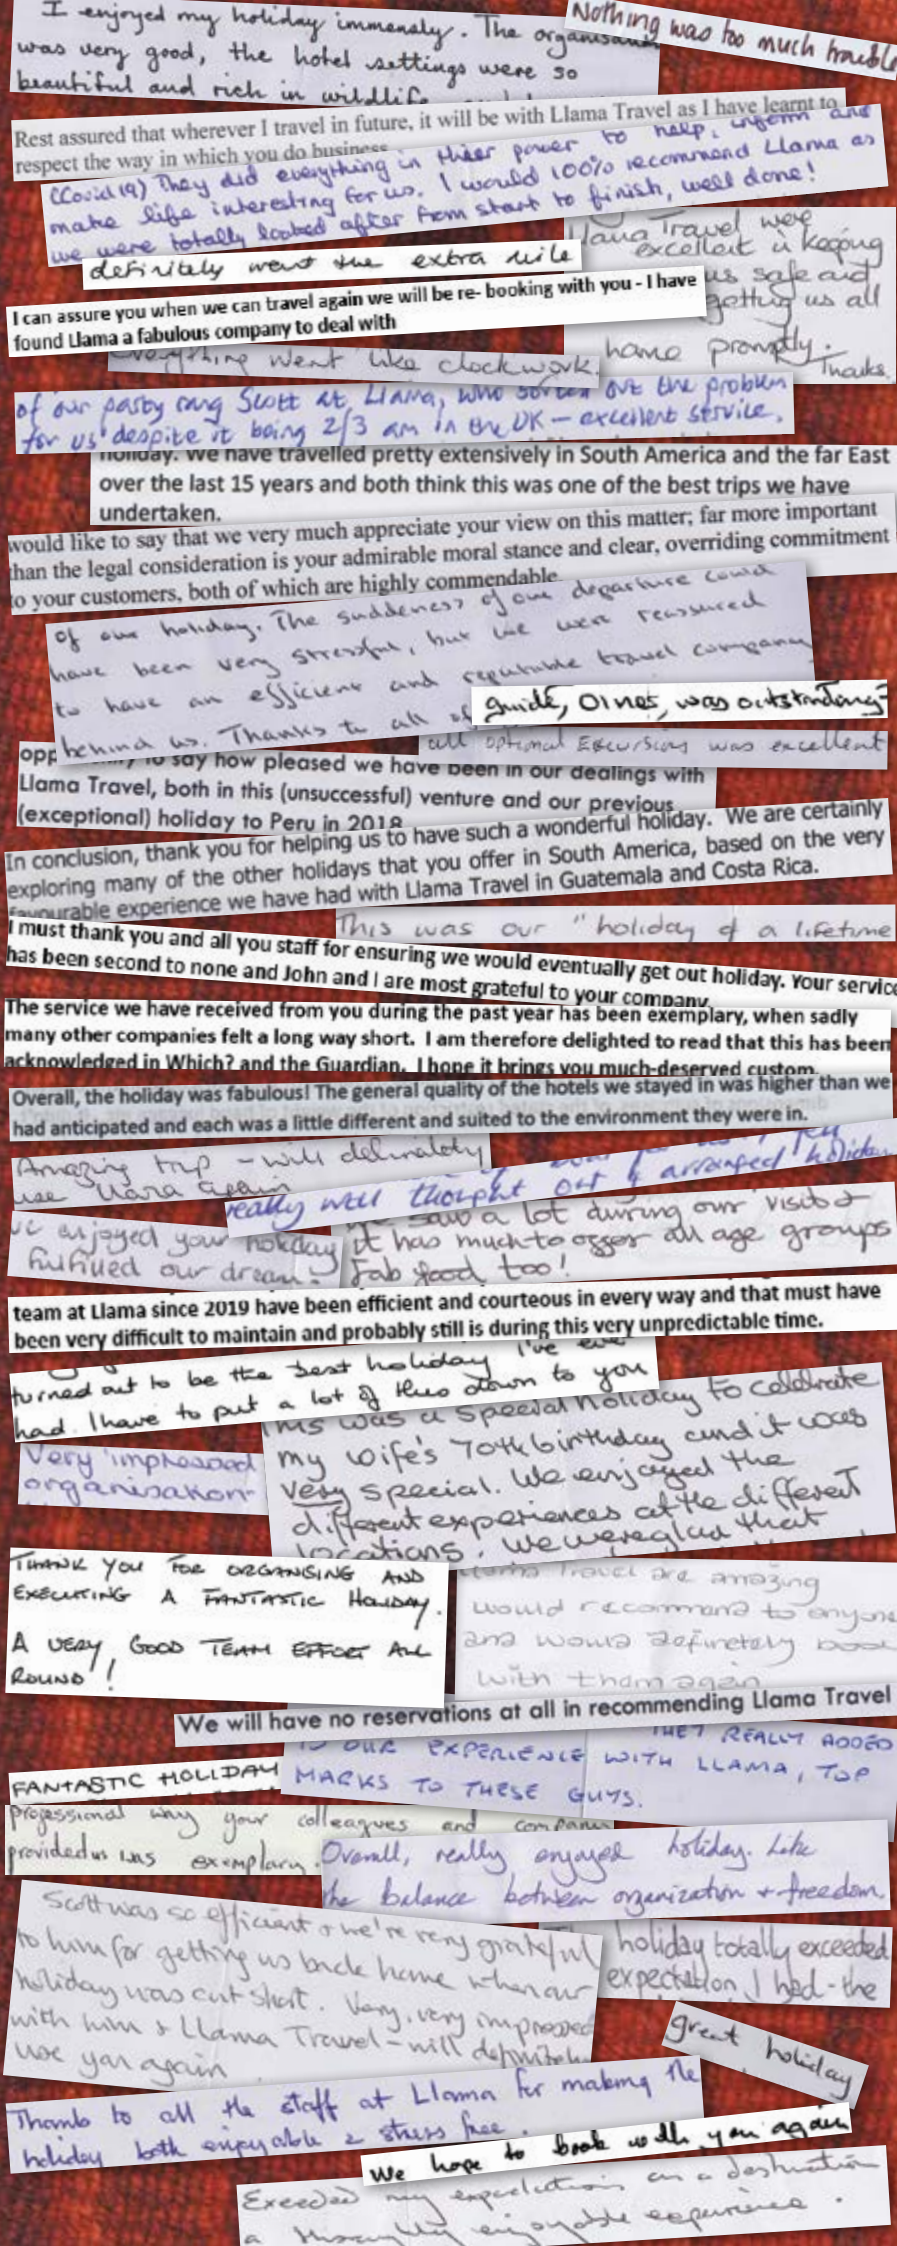 I enjoyed my holiday immensely. The organisation
was very good, the hotel settings were so
beautiful and rich in wildlife
Nothing was too much trouble
Rest assured that wherever I travel in future, it will be with Llama Travel as I have learnt to
respect the way in which you do business
(Covid 19) They did everything in their power to help, inform and
make life interesting for us. I would 100% recommend Llama as
we were totally looked after from start to finish, well done!
Llama Travel were
excellent in keeping
us safe and
getting us all
home promptly.
Thanks.
definitely went the extra mile
I can assure you when we can travel again we will be re- booking with you - I have
found Llama a fabulous company to deal with
everything went like clockwork.
of our party rang Scott at Llama, who sorted out the problem
for us despite it being 2/3 am in the UK – excellent service.
holiday. We have travelled pretty extensively in South America and the far East
over the last 15 years and both think this was one of the best trips we have
undertaken.
would like to say that we very much appreciate your view on this matter; far more important
than the legal consideration is your admirable moral stance and clear, overriding commitment
to your customers, both of which are highly commendable
of our holiday. The suddeness of our departure could
have been very stressful, but we were reassured
to have an efficient and reputable travel company
behind us. Thanks to all of
guide, was outstanding
all optional Excursions was excellent
opp to say how pleased we have been in our dealings with
Llama Travel, both in this (unsuccessful) venture and our previous
(exceptional) holiday to Peru in 2018
In conclusion, thank you for helping us to have such a wonderful holiday. We are certainly
exploring many of the other holidays that you offer in South America, based on the very
favourable experience we have had with Llama Travel in Guatemala and Costa Rica.
This was our "holiday of a lifetime
I must thank you and all you staff for ensuring we would eventually get out holiday. Your service
has been second to none and John and I are most grateful to your company.
The service we have received from you during the past year has been exemplary, when sadly
many other companies felt a long way short. I am therefore delighted to read that this has been
acknowledged in Which? and the Guardian. I hope it brings you much-deserved custom.
Overall, the holiday was fabulous! The general quality of the hotels we stayed in was higher than we
had anticipated and each was a little different and suited to the environment they were in.
Amazing trip – will definately
use again
really well thought out & arranged holiday
we enjoyed your holiday
fulfilled our dream.
We saw a lot during our visit &
it has much to offer all age groups
Fab food too!
team at Llama since 2019 have been efficient and courteous in every way and that must have
been very difficult to maintain and probably still is during this very unpredictable time.
turned out to be the best holiday I've ever
had. I have to put a lot of this down to you
This was a special holiday to celebrate
my wife's 70th birthday and it was
very special. We enjoyed the
different experiences at the different
locations. We were glad that
Very impressed
organisation-
THANK YOU FOR ORGANISING AND
EXECUTING A FANTASTIC HOLIDAY.
A VERY GOOD TEAM EFFORT ALL
ROUND!
Llama Travel are amazing
would recommend to anyone
and would definetely book
with them again
We will have no reservations at all in recommending Llama Travel
FANTASTIC HOLIDAY
THEY REALLY ADDED
TO OUR EXPERIENCE WITH LLAMA, TOP
MARKS TO THESE GUYS.
professional way your colleagues and company
provided us was exemplary.
Overall, really enjoyed holiday. Like
the balance between organization + freedom.
Scott was so efficient & we're very grateful
to him for getting us back home when our
holiday was cut short. Very, very impressed
with him & Llama Travel – will definitely
use you again
holiday totally exceeded
expectation I had - the
great holiday
Thanks to all the staff at Llama for making the
holiday both enjoyable & stress free.
We hope to book with you again
Exeeded my expectations as a destination
a thoroughly enjoyable experience.